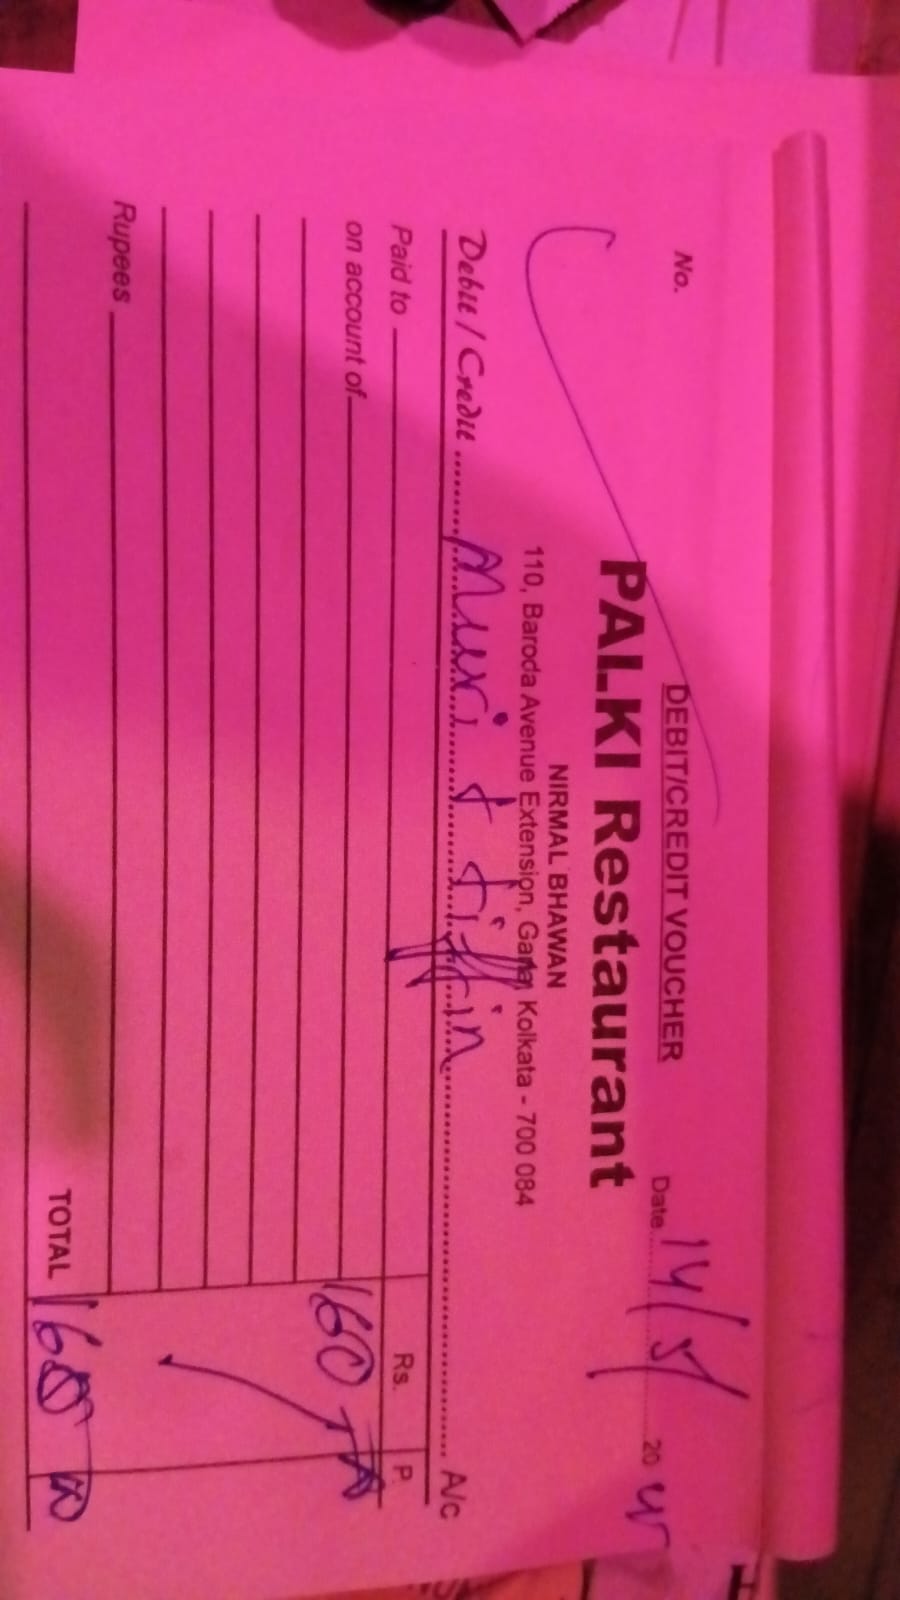 No.
DEBIT/CREDIT VOUCHER
Date 14/5/ 20
PALKI Restaurant
NIRMAL BHAWAN
110, Baroda Avenue Extension, Garia, Kolkata - 700 084
Debit / Credit Muri & tiffin A/c
Rs. P.
Paid to
on account of 160
Rupees
TOTAL 160